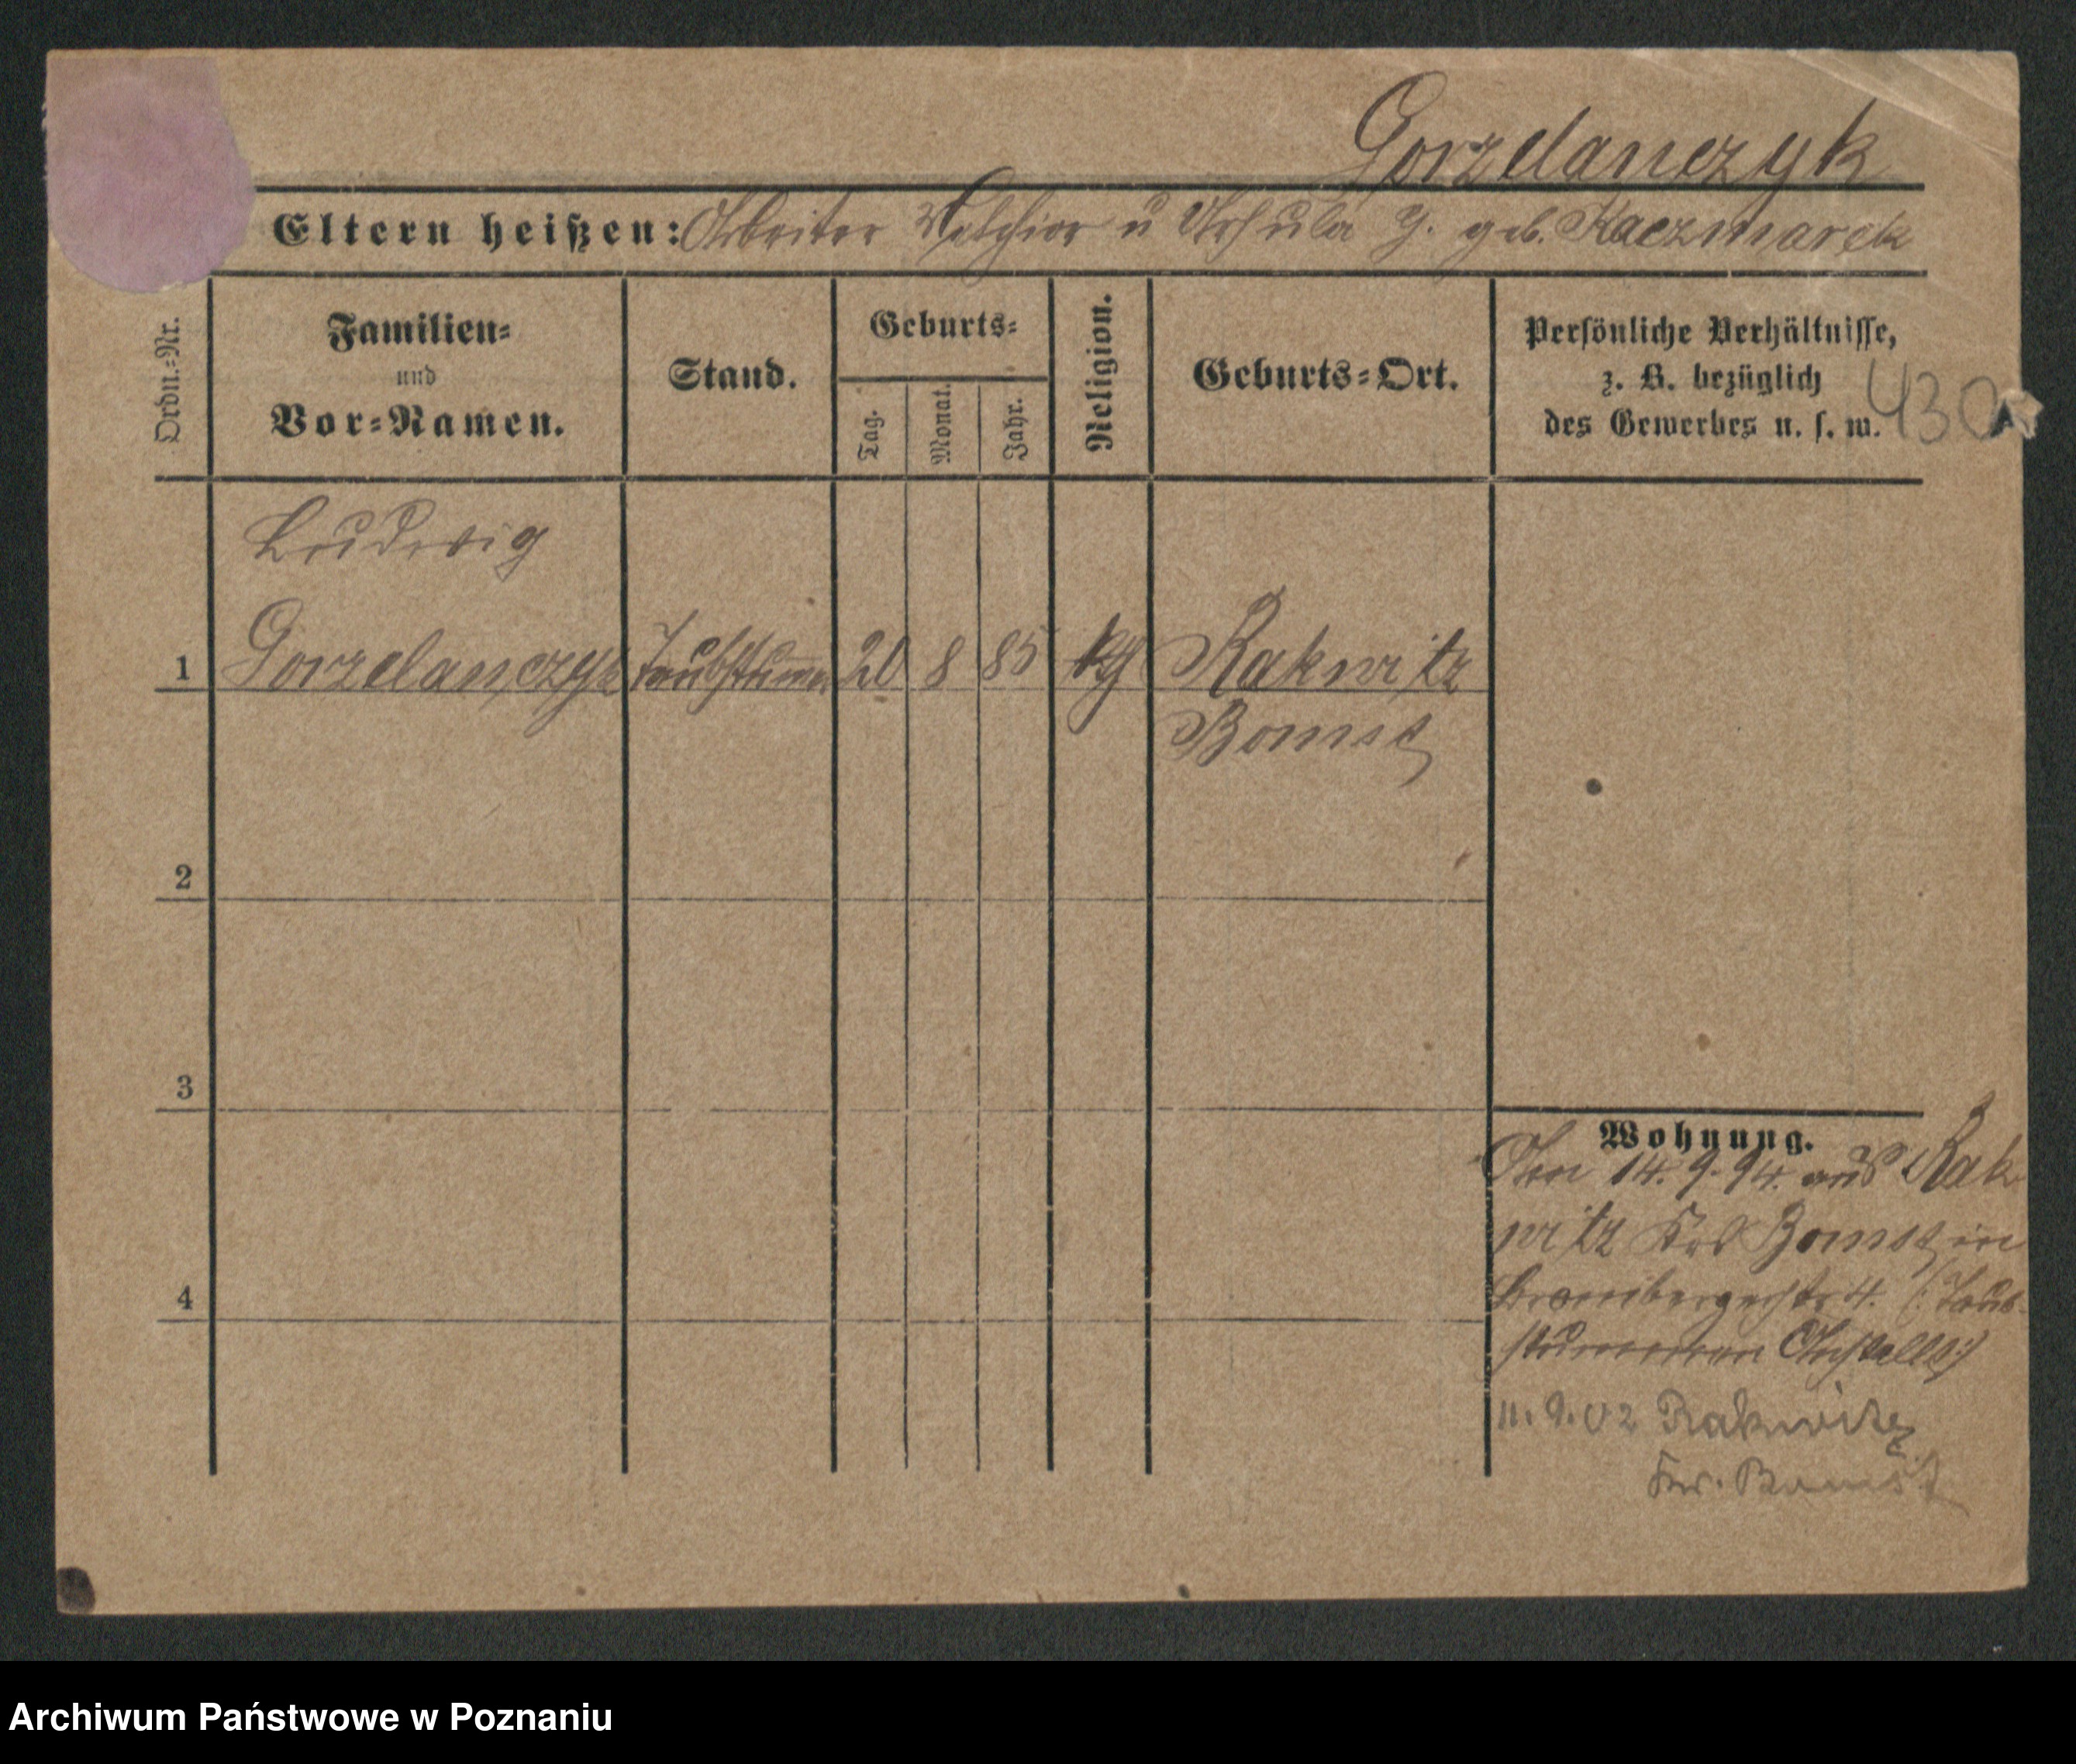 Gorzelanczyk
Eltern heißen: Arbeiter Melchior u Ursula G. geb. Kaczmarek
Ordn.=Nr.
Familien=
und
Vor=Namen.
Stand.
Geburts=
Tag.
Monat.
Jahr.
Religion.
Geburts=Ort.
Persönliche Verhältnisse,
z. B. bezüglich
des Gewerbes u. s. w.
430
Ludwig
1 Gorzelanczyk Taubstumm 20 8 85 kth Rakwitz
Bomst
2
3
4
Wohnung.
14. 9. 94. aus Rak
witz Krs Bomst in
Brombergerstr 4. (: Taub-
stummen Anstalt :)
11. 9. 02 Rakwitz
Kr. Bomst
Archiwum Państwowe w Poznaniu